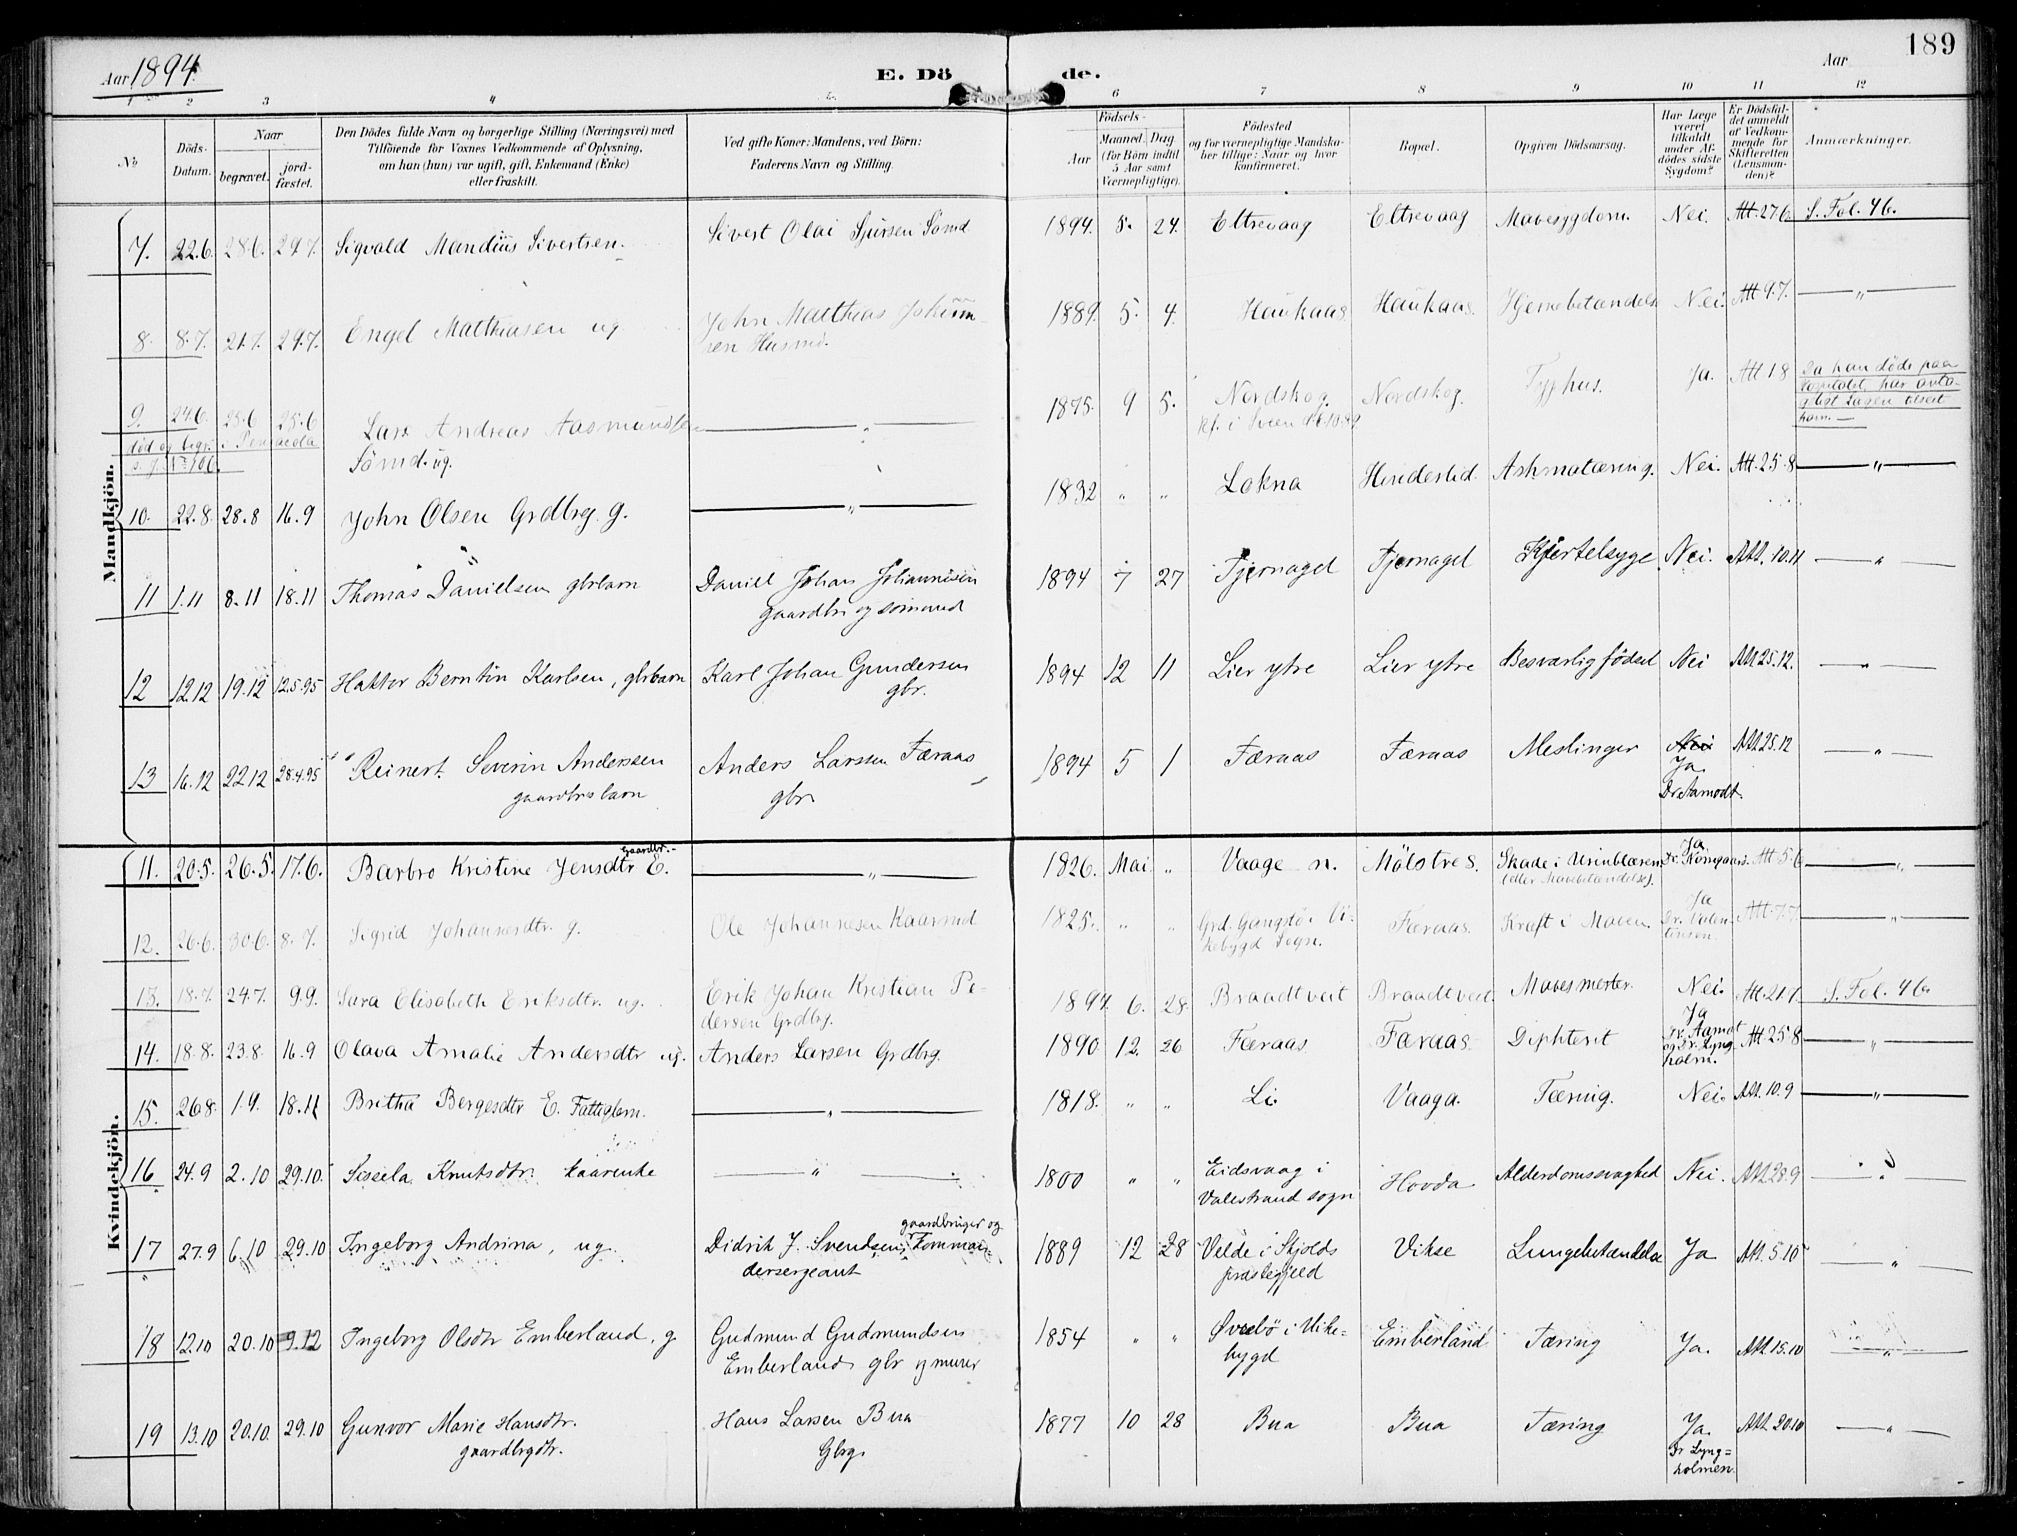 Aar 1894.
E. Döde.
Aar
189
1 2 3 4 5 6 7 8 9 10 11 12
No
Döds-Datum.
Naar
begravet.
jord-fæstet.
Den Dödes fulde Navn og borgerlige Stilling (Næringsvei) med
Tilföiende for Voxnes Vedkommende af Oplysning,
om han (hun) var ugift, gift, Enkemand (Enke)
eller fraskilt.
Ved gifte Koner: Mandens, ved Börn:
Faderens Navn og Stilling.
Födsels-
Aar
Maaned. Dag
(for Börn indtil
5 Aar samt
Værnepligtige).
Födested
og for værnepligtige Mandska-
ber tillige: Naar og hvor
konfirmeret.
Bopæl.
Opgiven Dödsaarsag.
Har Læge
været
tilkaldt
under Af-
dödes sidste
Sygdom?
Er Dödsfal-
det anmeldt
af Vedkom-
mende for
Skifteretten
(Lensman-
den)?
Anmærkninger.
Mandkjön.
7. 22.6. 28.6. 29.7. Sigvald Mandius Sivertsen. Sivert Olai Sjursen Sömd 1894. 5. 24. Eltrevaag Eltrevaag Mavesygdom. Nei. Att. 27.6 S. Fol. 46.
8. 8.7. 21.7. 29.7. Engel Matthiasen ug John Matthias Jokum-
sen Husmd. 1889. 5. 4. Haukaas Haukaas. Hjernebetændelse Nei. Att. 9.7. — " —
9. 24.6. 25.6 25.6 Lars Andreas Aasmundsen — " — 1875. 9 5. Nordskog. Nordskog. Typhus. Ja. Att 18 Da han döde paa
död og begr. i Pensacola
Sömd. ug.
10. 22.8. 28.8 16.9 John Olsen Grdbrg. g. — " — 1832 " " Lokna Hindested. Asthmatæring. Nei. Att. 25.8 — " —
11 1.11 8.11 18.11 Thomas Danielsen gbrbarn Daniel Johan Johannesen
gaardbr og sömand 1894 7 27 Tjernagel Tjernagel Kjertelsyge Nei. Att. 10.11 — " —
12 12.12 19.12 12.5.95 Haktor Berntin Karlsen, gbrbarn Karl Johan Gundersen
gbr. 1894 12 11 Lier ytre Lier ytre Besværlig födsel Nei Att 25.12. — " —
13 16.12 22.12 28.4.95 Reinert Severin Anderssen
gaardbrs barn Anders Larssen Færaas
gbr 1894 5 1 Færaas Færaas Meslinger Nei
Ja.
Dr. Aamodt. Att. 25.12 — " —
Kvindekjön.
11. 20.5. 26.5. 17.6. Barbro Kristine Jensdtr Gaardbr. E. — " — 1826. Mai. " Vaage n. Mölstre s. Skade i Urinblæren
(eller Mavebetændelse). Ja Att 5.6 — " —
12. 26.6. 30.6. 8.7. Sigrid Johannesdtr. g. Ole Johannesen Kaarmd 1825. " " Grd. Gangstö i Vi-
kebygd Sogn. Færaas. Kræft i Maven. Ja
Dr. Valen-
tinsen. Att. 7.7. — " —
13. 18.7. 24.7. 9.9. Sara Elisabeth Eriksdtr. ug. Erik Johan Kristian Pe-
dersen Grdbrg. 1894. 6. 28. Braadtveit Braadtveit. Mavesmerter. Nei. Att. 21.7 S. Fol. 46.
14. 18.8. 23.8. 16.9 Olava Amalie Andersdtr ug. Anders Larsen Grdbrg. 1890 12. 26 Færaas Færaas Diphterit Ja
Dr. Aamot
og Dr. Lyng-
holm. Att. 25.8 — " —
15. 26.8. 1.9. 18.11 Britha Bergesdtr E. Fattiglem. — " — 1818. " " Li. Vaaga. Tæring. Nei. Att. 10.9 — " —
16 24.9 2.10 29.10. Sissela Knutsdtr. kaarenke — " — 1800 " " Eidsvaag i
Valestrand sogn Hovda Alderdomssvaghed Nei. Att 28.9 — " —
17 27.9 6.10 29.10 Ingeborg Andrina, ug. Didrik J. Svendsen, gaardbruger og Komman-
dersergeant 1889 12 28 Velde i Skjolds
præstegjeld Vikse Lungebetændelse Ja Att. 5.10 — " —
18 12.10 20.10 9.12 Ingeborg Olsdtr Emberland, g. Gudmund Gudmundsen
Emberland gbr og murer 1854 " " Øvrebö i Vike-
bygd Emberland Tæring Ja. Att. 15.10 — " —
19 13.10 20.10. 29.10 Gunvor Marie Hansdtr.
gaardbrgdtr. Hans Larsen Bua
Gbrg. 1877 10 28 Bua Bua Tæring Ja
Dr Lyng=
holmen. Att. 20.10 — " —